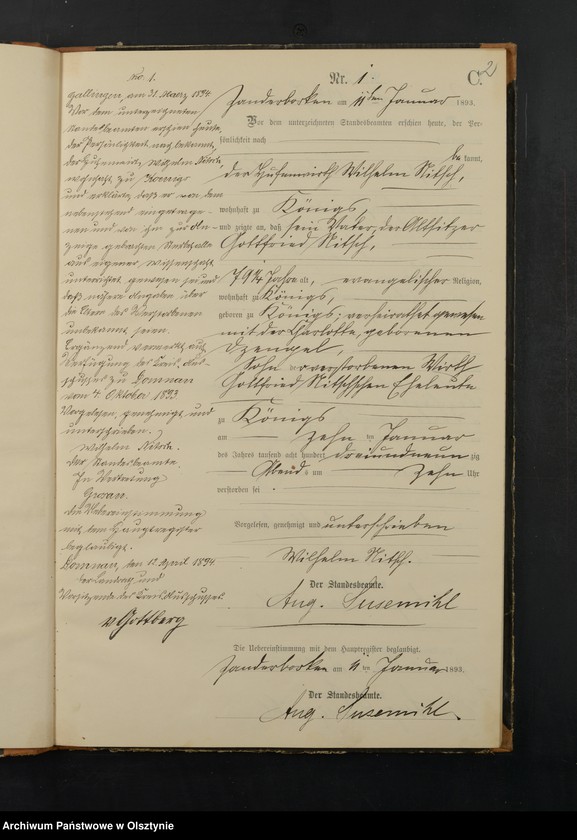 No. 1.
Gallingen, am 31. Maerz 1894
Vor dem unterzeichneten
Standesbeamten erschien heute,
der Persönlichkeit nach bekannt,
der Hufenwirth Wilhelm Nitsch
wohnhaft zu Königs
und erklärte, daß er von dem
nebenstehend eingetrage-
nen und von ihm zur An-
zeige gebrachten Sterbefalle
aus eigener Wissenschaft
unterrichtet gewesen sei und
daß nähere Angaben über
die Eltern des Verstorbenen
unbekannt seien.
Ergänzend vermerkt auf
Verfügung des Kreis-Aus-
schusses zu Domnau
vom 4. Oktober 1893
Vorgelesen, genehmigt und
unterschrieben.
Wilhelm Nitsch.
Der Standesbeamte.
In Vertretung
Die Uebereinstimmung
mit dem Hauptregister
beglaubigt.
Domnau, den 12. April 1894
Der Landrath und
Vorsitzende des Kreis-Ausschusses.
v. Gottberg
C. 2
Nr. 1.
Zanderborken am 11ten Januar 1893.
Vor dem unterzeichneten Standesbeamten erschien heute, der Per-
sönlichkeit nach
be kannt,
der Hufenwirth Wilhelm Nitsch,
wohnhaft zu Königs
und zeigte an, daß sein Vater, der Altsitzer
Gottfried Nitsch,
79 1/4 Jahre alt, evangelischer Religion,
wohnhaft zu Königs,
geboren zu Königs; verheirathet gewesen
mit der Charlotte, geborenen
Dzengel,
Sohn der verstorbenen Wirth
Gottfried Nitsch'schen Eheleute
zu Königs
am zehn ten Januar
des Jahres tausend acht hundert dreiundneun zig
Abend s um zehn Uhr
verstorben sei.
Vorgelesen, genehmigt und unterschrieben
Wilhelm Nitsch.
Der Standesbeamte.
Aug. Susemihl
Die Uebereinstimmung mit dem Hauptregister beglaubigt.
Zanderborken am 11 ten Januar 1893.
Der Standesbeamte.
Aug. Susemihl.
Archiwum Państwowe w Olsztynie